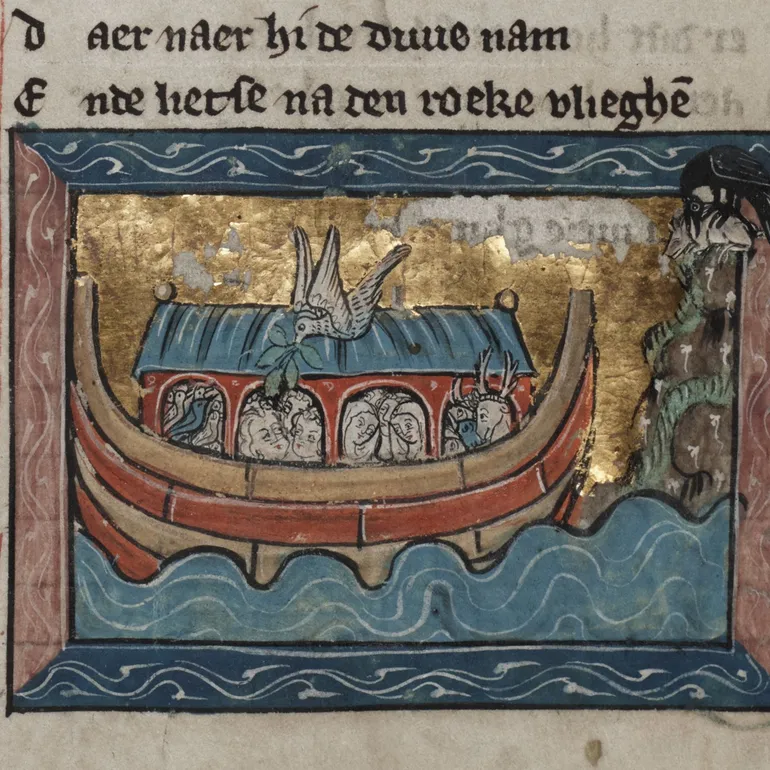 D aer naer hi de duue nam
E nde lietse na den roeke vlieghē